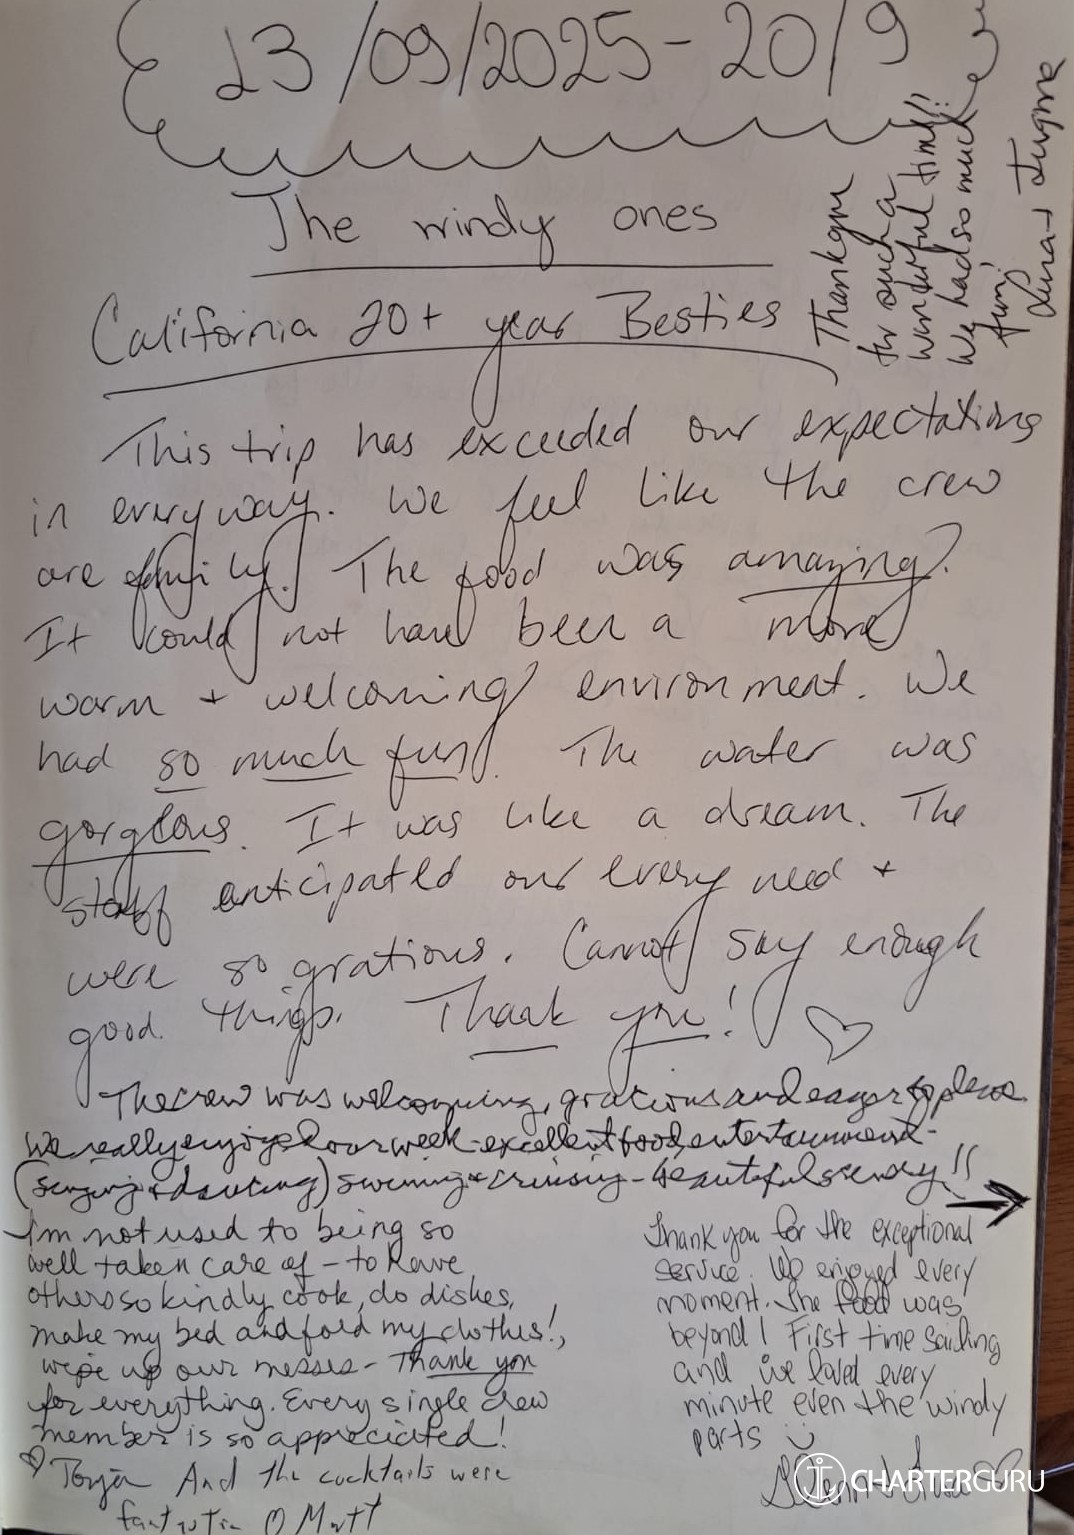 13/09/2025 - 20/9
The windy ones
California 20+ year Besties
Thank you
for such a
wonderful time!!
We had so much
fun!
This trip has exceeded our expectations
in every way. We feel like the crew
are family! The food was amazing!
It could not have been a more
warm + welcoming environment. We
had so much fun! The water was
gorgeous. It was like a dream. The
staff anticipated our every need +
were so gratious. Cannot say enough
good things. Thank you!
The crew was welcoming, gracious and eager to please
We really enjoyed our week - excellent food, entertainment -
(singing + dancing) swimming + cruising - beautiful scenery!!
I'm not used to being so
well taken care of - to have
others so kindly cook, do dishes,
make my bed and fold my clothes!,
wipe up our messes - Thank you
for everything. Every single crew
member is so appreciated!
And the cocktails were
Matt
Thank you for the exceptional
service. We enjoyed every
moment. The food was
beyond! First time sailing
and we loved every
minute even the windy
parts
CHARTERGURU